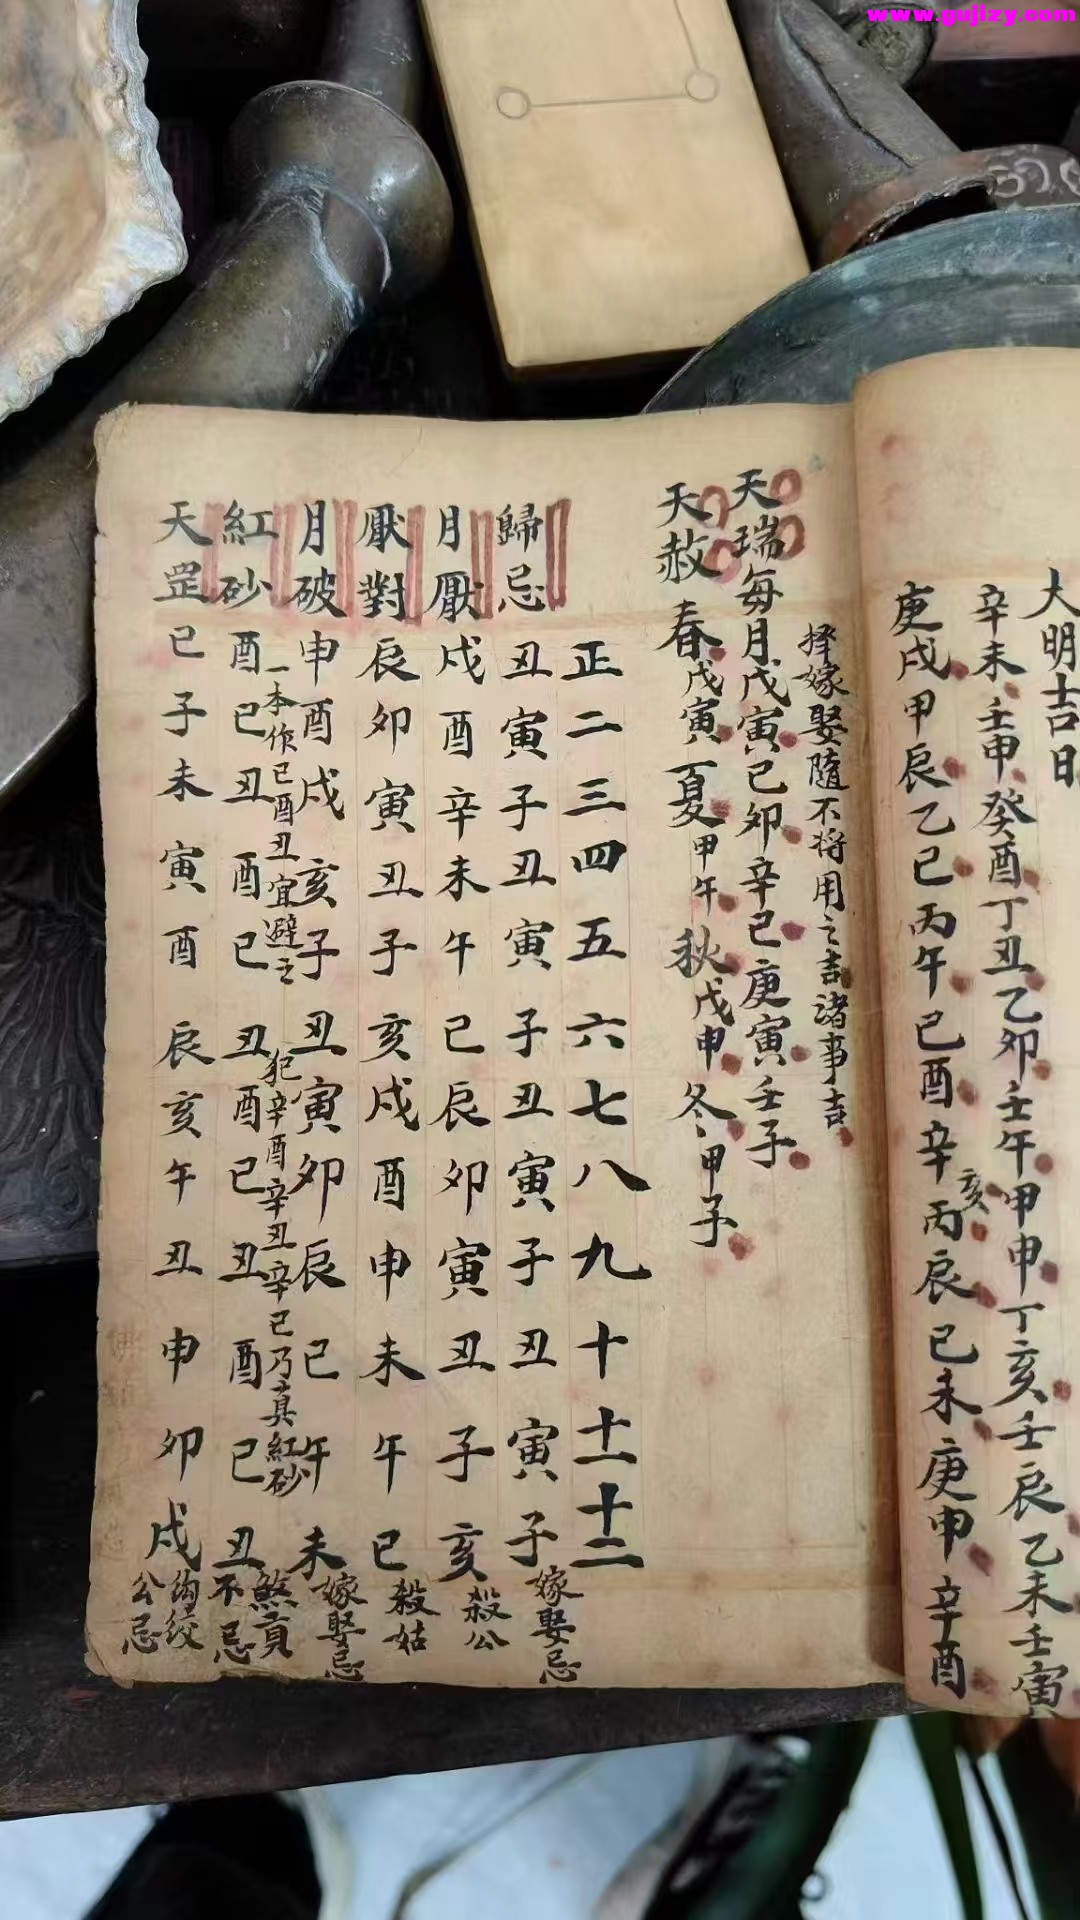 www.gujizy.com
大明吉日
辛未壬申癸酉丁丑乙卯壬午甲申丁亥壬辰乙未壬寅
庚戌甲辰乙巳丙午己酉辛亥丙辰己未庚申辛酉
擇嫁娶隨不將用之吉諸事吉
天瑞每月戊寅己卯辛巳庚寅壬子
天赦春戊寅夏甲午秋戊申冬甲子
正二三四五六七八九十十一十二
歸忌丑寅子丑寅子丑寅子丑寅子嫁娶忌
月厭戍酉辛未午巳辰卯寅丑子亥殺公
厭對辰卯寅丑子亥戍酉申未午巳殺姑
月破申酉戍亥子丑寅卯辰巳午未嫁娶忌
一本作巳酉丑宜避之 犯辛酉辛丑辛巳乃真紅砂
紅砂酉巳丑酉巳丑酉巳丑酉巳丑煞貢不忌
天罡巳子未寅酉辰亥午丑申卯戍鈎绞公忌